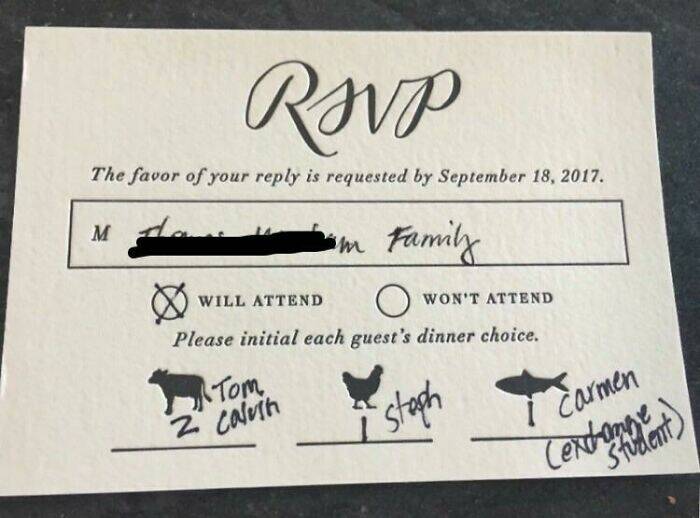 RSVP
The favor of your reply is requested by September 18, 2017.
M Family
WILL ATTEND WON'T ATTEND
Please initial each guest's dinner choice.
2 Tom Calvin
1 Steph
1 Carmen
(exchange student)